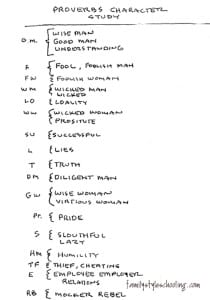 PROVERBS CHARACTER
STUDY
WISE MAN
G.M. GOOD MAN
UNDERSTANDING
F FOOL, FOOLISH MAN
FW FOOLISH WOMAN
WM WICKED MAN
WICKED
LO LOALITY
WW WICKED WOMAN
PROSITUTE
SU SUCCESSFUL
L LIES
T TRUTH
DM DILIGENT MAN
GW WISE WOMAN
VIRTIOUS WOMAN
Pr. PRIDE
S SLOUTHFUL
LAZY
HM HUMILITY
TF THIEF, CHEATING
E EMPLOYEE EMPLOYER
RELATIONS
RB MOCKER REBEL
familystyleschooling.com